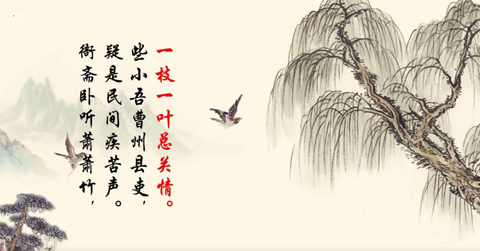 衙斋卧听萧萧竹，
疑是民间疾苦声。
些小吾曹州县吏，
一枝一叶总关情。